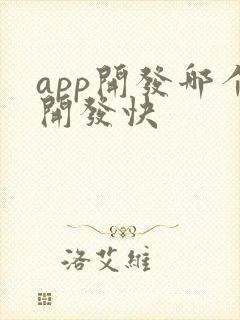 app開發哪个
開發快
洛艾維